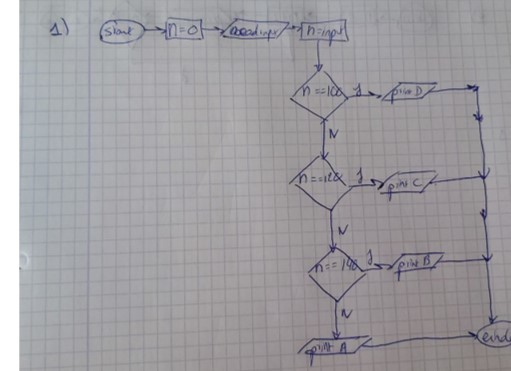 1)
start
n=0
read input
n=input
n==100
J
print D
N
n==120
J
print C
N
n==140
J
print B
N
print A
einde